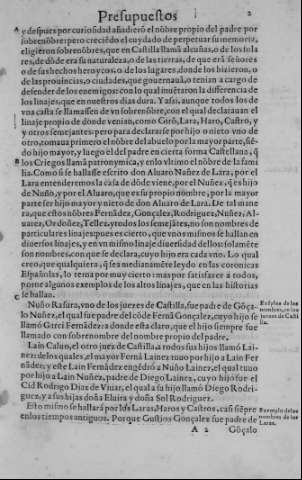 Presupuestos 2
A y despues por curiosidad añadierō el nōbre propio del padre por
sobrenōbre: pero creciēdo el cuydado de perpetuar su memoria,
eligieron sobrenōbres, que en Castilla llamā alcuñas, o de los sola
res, de dōde era su naturaleza, o de las tierras, de que erā señores
o de sus hechos heroycos, o de los lugares, donde los hizieron, o
de las prouincias, o ciudades, que gouernauā, o tenian a cargo de
defender de los enemigos: con lo qual muêtaron la differencia de
los linajes, que en nuestros dias dura. Y assi, aunque todos los de
vna casta se llamassen de vn sobrenōbre, con el qual declarauan el
linaje propio de donde venian, como Girō, Lara, Haro, Castro, y
y otros semejantes: pero para declararse por hijo o nieto vno de
otro, tomaua primero el nōbre del abuelo por la mayor parte, siē
do hijo mayor, y luego el del padre en cierta forma Castellana, q̄
los Criegos llamā patronymica, y en lo vltimo el nōbre de la fami
lia. Como si se hallasse escrito don Aluaro Nuñez de Lara, por el
Lara entenderemos la casa de dōde viene, por el Nuñez, q̄ es hijo
de Nuño, y por el Aluaro, que es su propio nōbre, por la mayor
parte ser hijo mayor y nieto de don Aluaro de Lara. De tal mane
ra, que estos nōbres Fernādez, Gonçalez, Rodriguez, Nuñez, Al-
uarez, Ordoñez, Tellez, y todos los semejātes, no son nombres de
particulares linajes: pues es cierto, que vnos mismos se hallan en
diuersos linajes, y en vn mismo linaje diuersidad dellos: solamēte
son nombres, con que se declara, cuyo hijo era cada vno. Lo qual
creo, que qualquiera, q̄ sea medianamēte leydo en las coronicas
Españolas, lo terna por muy cierto: mas por satisfazer a todos,
porne algunos exemplos de los altos linajes, que en las historias
se hallan.
C Nuño Rasura, vno de los juezes de Castilla, fue padre de Gōça
lo Nuñez, el qual fue padre del cōde Fernā Gonçalez, cuyo hijo se
llamō Garci Fernādez: a donde esta claro, que el hijo siempre fue
llamado con sobrenombre del nombre propio del padre.
Lain Caluo, el otro juez de Castilla, a todos sus hijos llamō Lai-
nez: de los quales, el mayor Fernā Lainez tuuo por hijo a Lain Fer
nādez, y este Lain Fernādez engēdrō a Nuño Lainez, el qual tuuo
por hijo a Lain Nuñez, padre de Diego Lainez, cuyo hijo fue el
Cid Rodrigo Diaz de Viuar, el qual a su hijo llamō Diego Rodri-
guez, y a sus hijas doña Eluira y doña Sol Rodriguez.
Esto mismo se hallarà por los Laras, Haros y Castros, casi siēpre
en los tiempos antiguos. Porque Gustios Gonçalez fue padre de
A 2 Gōçalo
de los
nombres, en los
juezes de Casti
lla.
Exemplo de los
nombres de los
Laras.